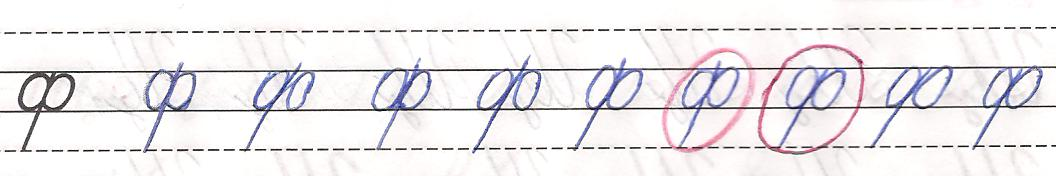 ф ф ф ф ф ф ф ф ф ф